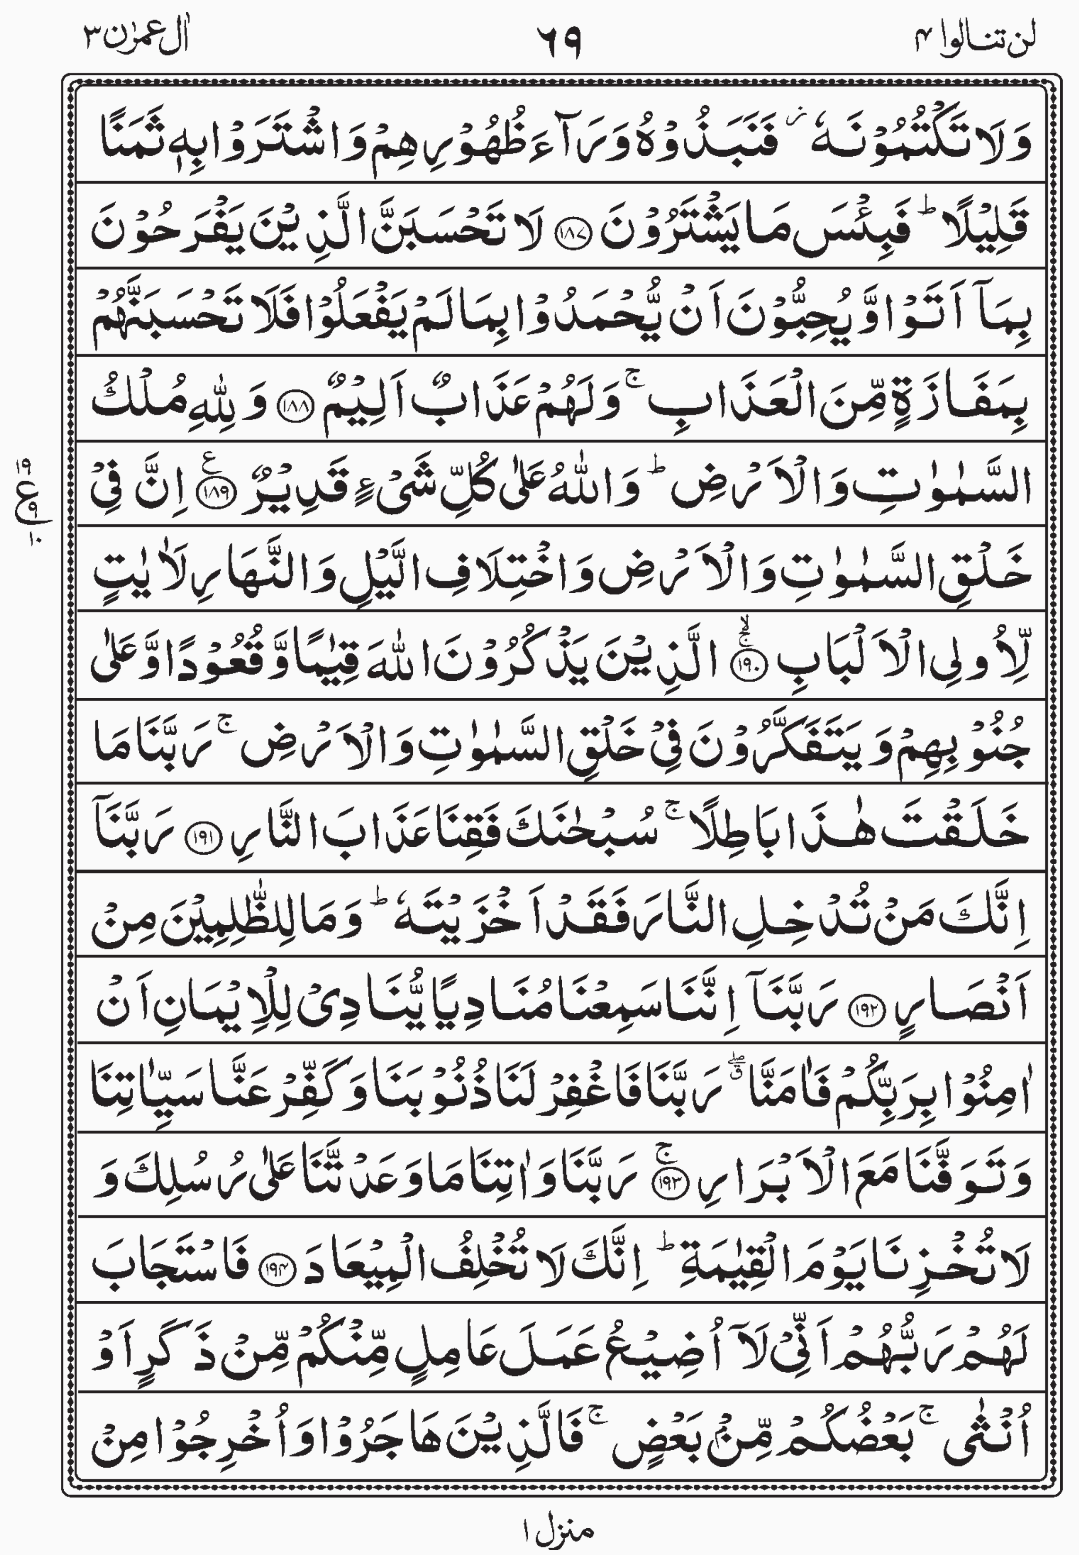 لن تنالوا ۴ ٦٩ اٰل عمرٰن ۳
وَلَا تَكْتُمُوْنَهٗ ز فَنَبَذُوْهُ وَرَآءَ ظُهُوْرِهِمْ وَاشْتَرَوْا بِهٖ ثَمَنًا
قَلِيْلًا ؕ فَبِئْسَ مَا يَشْتَرُوْنَ ﴿۱۸۷﴾ لَا تَحْسَبَنَّ الَّذِيْنَ يَفْرَحُوْنَ
بِمَآ اَتَوْا وَّيُحِبُّوْنَ اَنْ يُّحْمَدُوْا بِمَا لَمْ يَفْعَلُوْا فَلَا تَحْسَبَنَّهُمْ
بِمَفَازَةٍ مِّنَ الْعَذَابِ ۚ وَلَهُمْ عَذَابٌ اَلِيْمٌ ﴿۱۸۸﴾ وَلِلّٰهِ مُلْكُ
السَّمٰوٰتِ وَالْاَرْضِ ؕ وَاللّٰهُ عَلٰى كُلِّ شَیْءٍ قَدِيْرٌ ﴿۱۸۹﴾ ع اِنَّ فِیْ
۱۹
ع
۹
۱۰
خَلْقِ السَّمٰوٰتِ وَالْاَرْضِ وَاخْتِلَافِ الَّيْلِ وَالنَّهَارِ لَاٰيٰتٍ
لِّاُولِی الْاَلْبَابِ ﴿۱۹۰﴾ ۚۙ الَّذِيْنَ يَذْكُرُوْنَ اللّٰهَ قِيٰمًا وَّقُعُوْدًا وَّعَلٰى
جُنُوْبِهِمْ وَيَتَفَكَّرُوْنَ فِیْ خَلْقِ السَّمٰوٰتِ وَالْاَرْضِ ۚ رَبَّنَا مَا
خَلَقْتَ هٰذَا بَاطِلًا ۚ سُبْحٰنَكَ فَقِنَا عَذَابَ النَّارِ ﴿۱۹۱﴾ رَبَّنَآ
اِنَّكَ مَنْ تُدْخِلِ النَّارَ فَقَدْ اَخْزَيْتَهٗ ؕ وَمَا لِلظّٰلِمِيْنَ مِنْ
اَنْصَارٍ ﴿۱۹۲﴾ رَبَّنَآ اِنَّنَا سَمِعْنَا مُنَادِيًا يُّنَادِیْ لِلْاِيْمَانِ اَنْ
اٰمِنُوْا بِرَبِّكُمْ فَاٰمَنَّا ۖق رَبَّنَا فَاغْفِرْ لَنَا ذُنُوْبَنَا وَكَفِّرْ عَنَّا سَيِّاٰتِنَا
وَتَوَفَّنَا مَعَ الْاَبْرَارِ ﴿۱۹۳﴾ ۚ رَبَّنَا وَاٰتِنَا مَا وَعَدْتَّنَا عَلٰى رُسُلِكَ وَ
لَا تُخْزِنَا يَوْمَ الْقِيٰمَةِ ؕ اِنَّكَ لَا تُخْلِفُ الْمِيْعَادَ ﴿۱۹۴﴾ فَاسْتَجَابَ
لَهُمْ رَبُّهُمْ اَنِّیْ لَآ اُضِيْعُ عَمَلَ عَامِلٍ مِّنْكُمْ مِّنْ ذَكَرٍ اَوْ
اُنْثٰى ۚ بَعْضُكُمْ مِّنْۢ بَعْضٍ ۚ فَالَّذِيْنَ هَاجَرُوْا وَاُخْرِجُوْا مِنْ
منزل ۱